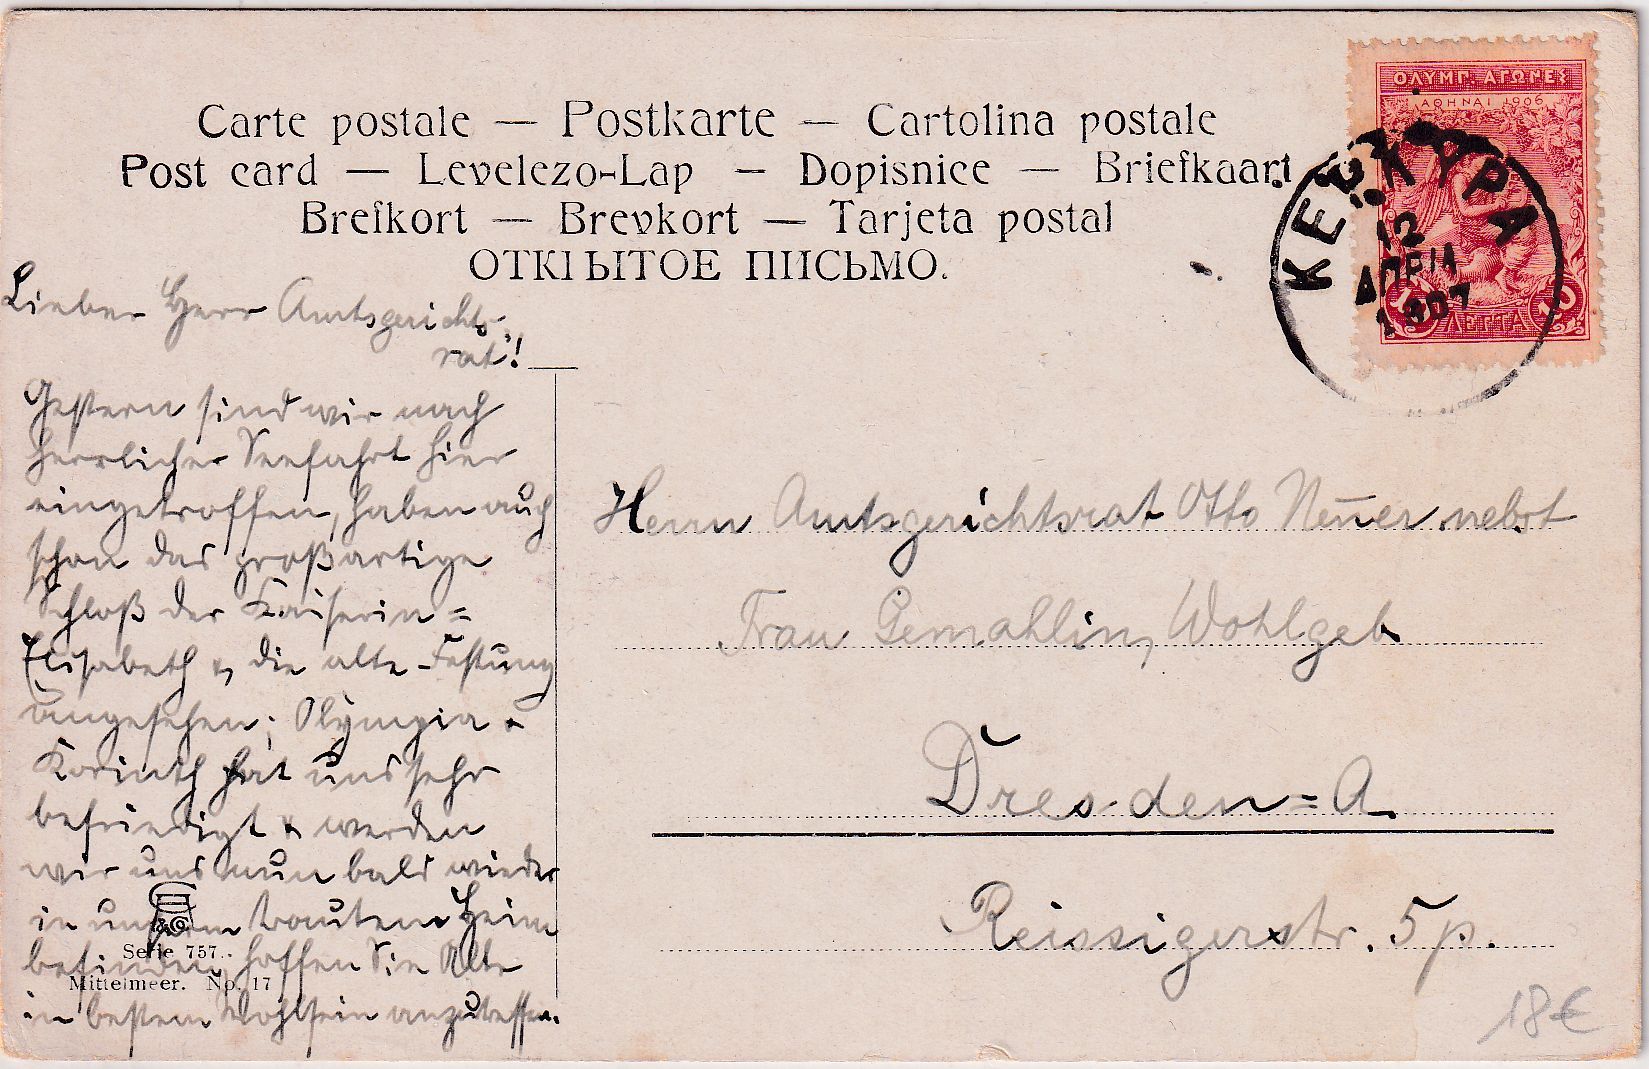 Carte postale — Postkarte — Cartolina postale
Post card — Levelezo-Lap — Dopisnice — Briefkaart
Brefkort — Brevkort — Tarjeta postal
ОТКРЫТОЕ ПИСЬМО.
ΟΛΥΜΠ. ΑΓΩΝΕΣ
ΑΘΗΝΑΙ 1906
10 ΛΕΠΤΑ 10
ΚΕΡΚΥΡΑ
12
ΑΠΡΙΛ
1907
Lieber Herr Amtsgerichts-
rat!
Gestern sind wir nach
herrlicher Seefahrt hier
eingetroffen, haben auch
schon das großartige
Schloß der Kaiserin=
Elisabeth u. die alte Festung
angesehen; Olympia u.
Korinth hat uns sehr
befriedigt u. werden
wir uns nun bald wieder
in unserm trauten Heim
befinden, hoffen Sie Alle
in bestem Wohlsein anzutreffen.
Serie 757.
Mittelmeer. No. 17
Herrn Amtsgerichtsrat Otto nebst
Frau Gemahlin, Wohlgeb
Dresden=A.
Reissigerstr. 5 p.
18€